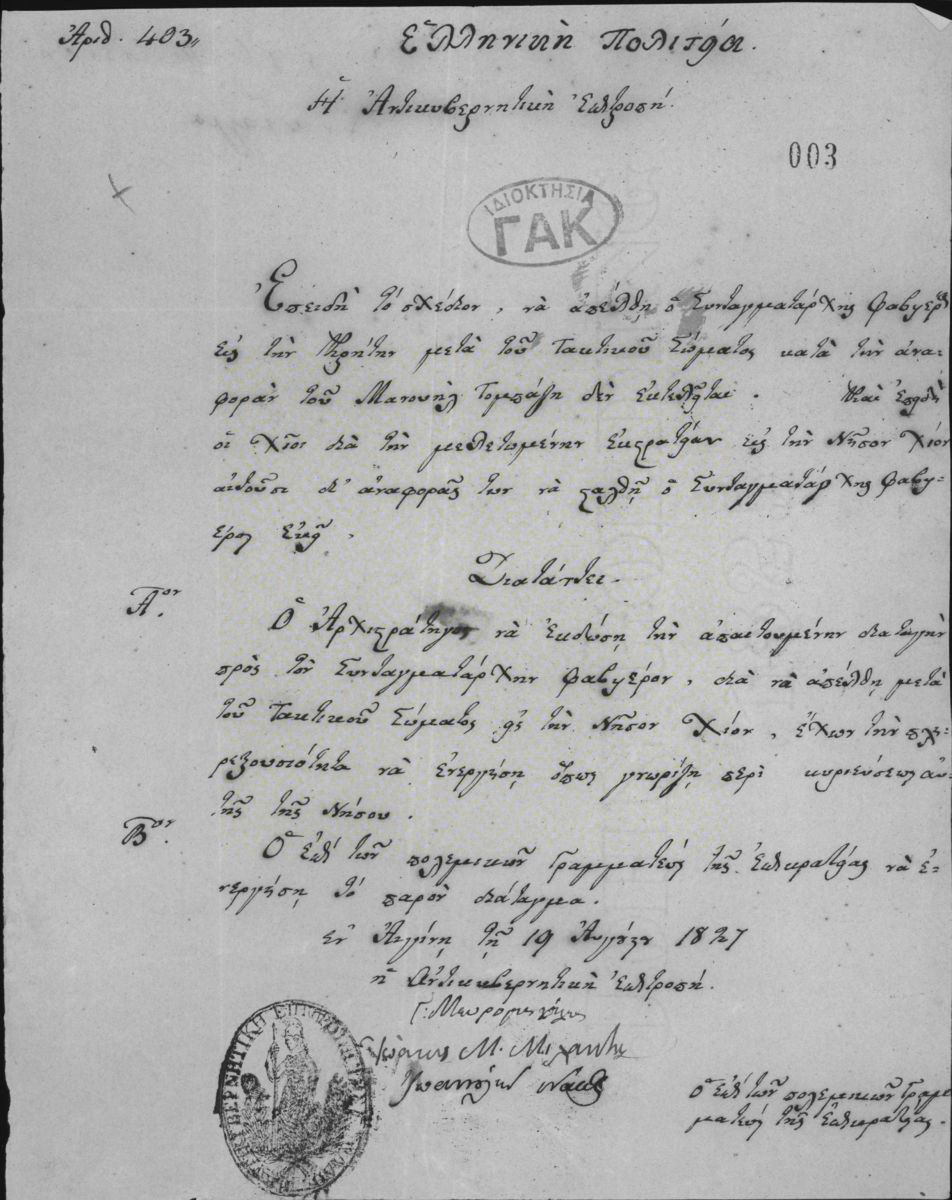 Ἀριθ. 403,,
Ἑλληνικὴ Πολιτεία.
Ἡ Ἀντικυβερνητικὴ Ἐπιτροπή.
003
ΙΔΙΟΚΤΗΣΙΑ
ΓΑΚ
Ἐπειδὴ τὸ σχέδιον, νὰ ἀπέλθῃ ὁ Συνταγματάρχης Φαβιέρος
εἰς τὴν Κρήτην μετὰ τοῦ Τακτικοῦ Σώματος κατὰ τὴν ἀνα-
φορὰν τοῦ Μανουὴλ Τομπάζη δὲν ἐκτελεῖται. Καὶ ἐπειδὴ
οἱ Χῖοι διὰ τὴν μελετωμένην ἐκστρατείαν εἰς τὴν Νῆσον Χίον
αἰτοῦσι δι' ἀναφορᾶς των νὰ σταλθῇ ὁ Συνταγματάρχης Φαβι-
έρος ἐκεῖ.
Διατάττει.
Α.ον
Ὁ Ἀρχιστράτηγος νὰ ἐκδώσῃ τὴν ἀπαιτουμένην διαταγὴν
πρὸς τὸν Συνταγματάρχην Φαβιέρον, διὰ νὰ ἀπέλθῃ μετὰ
τοῦ Τακτικοῦ Σώματος εἰς τὴν Νῆσον Χίον, ἔχων τὴν πλη-
ρεξουσιότητα νὰ ἐνεργήσῃ ὅπως γνωρίζῃ περὶ κυριεύσεως αὐ-
τῆς τῆς Νήσου.
Β.ον
Ὁ ἐπὶ τῶν πολεμικῶν Γραμματεὺς τῆς Ἐπικρατείας νὰ ἐ-
νεργήσῃ τὸ παρὸν διάταγμα.
ἐν Αἰγίνῃ τῇ 19 Αὐγούστου 1827
ἡ Ἀντικυβερνητικὴ Ἐπιτροπή.
Γ: Μαυρομιχάλης
Ἰωαννούλης Νάκος
ὁ ἐπὶ τῶν πολεμικῶν Γραμ-
ματεὺς τῆς Ἐπικρατείας.